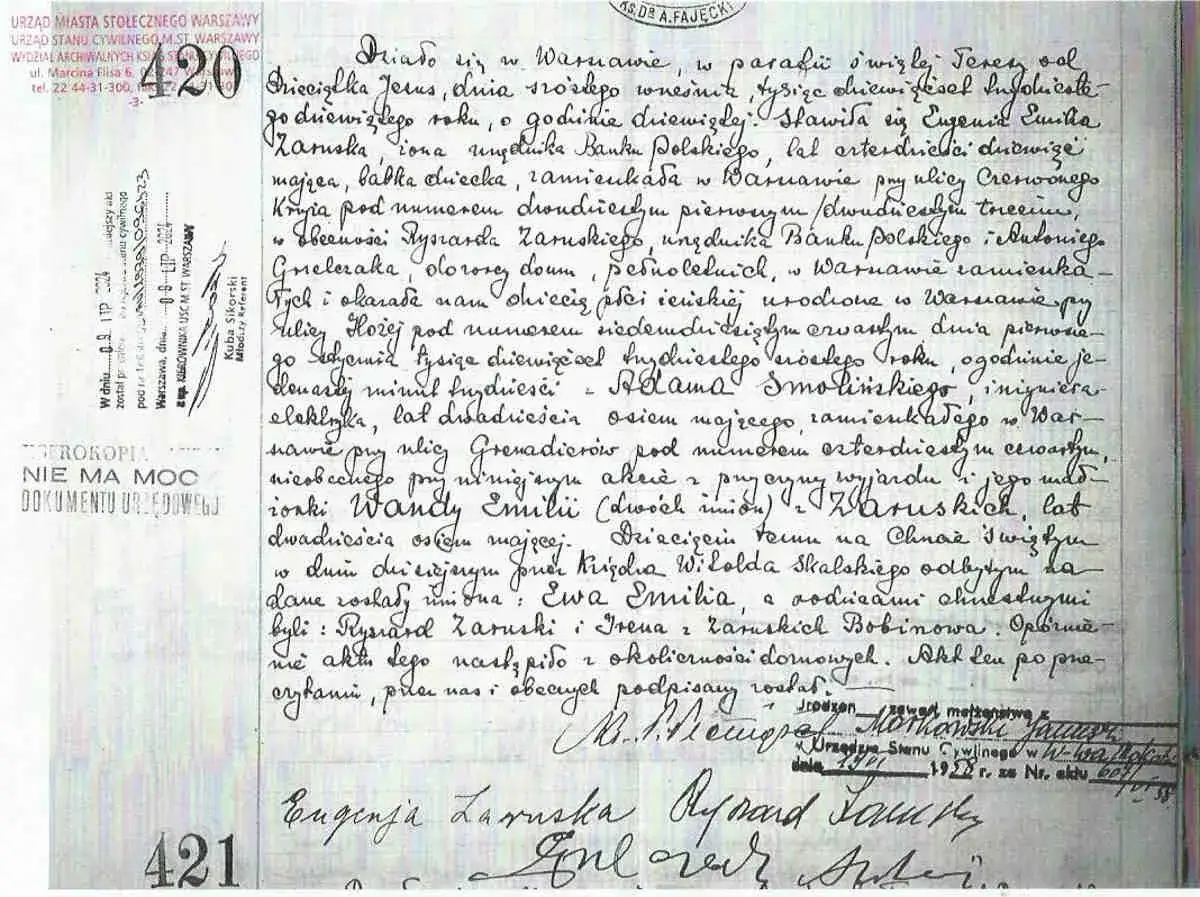 KS. DR A. FAJĘCKI
URZĄD MIASTA STOŁECZNEGO WARSZAWY
URZĄD STANU CYWILNEGO M.ST. WARSZAWY
WYDZIAŁ ARCHIWALNYCH KSIĄG STANU CYWILNEGO
ul. Marcina Flisa 6, 02-247 Warszawa
tel. 22 44-31-300,
-3-
420
Działo się w Warszawie, w parafii świętej Teresy od
Dzieciątka Jezus, dnia szóstego września, tysiąc dziewięćset trzydzieste-
go dziewiątego roku, o godzinie dziewiątej. Stawiła się Eugenia Emilia
Zaruska, żona urzędnika Banku Polskiego, lat czterdzieści dziewięć
mająca, babka dziecka, zamieszkała w Warszawie przy ulicy Czerwonego
Krzyża pod numerem dwudziestym pierwszym /dwudziestym trzecim,
w obecności Ryszarda Zaruskiego, urzędnika Banku Polskiego i Antoniego
Grzelczaka, dozorcy domu, pełnoletnich, w Warszawie zamieszka-
łych i okazała nam dziecię płci żeńskiej urodzone w Warszawie przy
ulicy Hożej pod numerem siedemdziesiątym czwartym dnia pierwsze-
go stycznia tysiąc dziewięćset trzydziestego szóstego roku, o godzinie je-
denastej minut trzydzieści z Adama Smolińskiego, inżyniera
elektryka, lat dwadzieścia osiem mającego, zamieszkałego w War-
szawie przy ulicy Grenadierów pod numerem czterdziestym czwartym,
nieobecnego przy niniejszym akcie z przyczyny wyjazdu i jego mał-
żonki Wandy Emilii (dwóch imion) z Zaruskich, lat
dwadzieścia osiem mającej. Dziecięciu temu na Chrzcie Świętym
w dniu dzisiejszym przez Księdza Witolda Skalskiego odbytym na
dane zostały imiona: Ewa Emilia, a rodzicami chrzestnymi
byli: Ryszard Zaruski i Irena z Zaruskich Bobinowa. Opóźnie-
nie aktu tego nastąpiło z okoliczności domowych. Akt ten po prze-
czytaniu, przez nas i obecnych podpisany został.
W dniu 09 LIP 2024
Warszawa, dnia 09 LIP 2024
z up. KIEROWNIKA USC M.ST. WARSZAWY
Kuba Sikorski
Młodszy Referent
NIE MA MOC
DOKUMENTU URZĘDOWEGO
zawarł małżeństwo z
Markowski
w Urzędzie Stanu Cywilnego w W-wa
dnia 1958 r. za Nr. aktu
Eugenja Zaruska Ryszard Zaruski
421